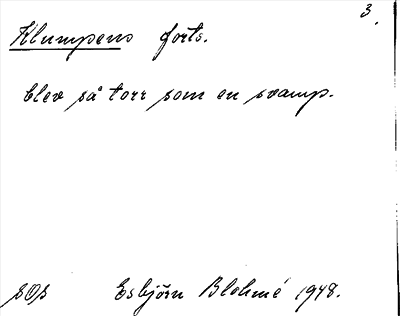 3.
Klumpens forts.
blev så torr som en svamp.
SOS Esbjörn Blohmé 1948.